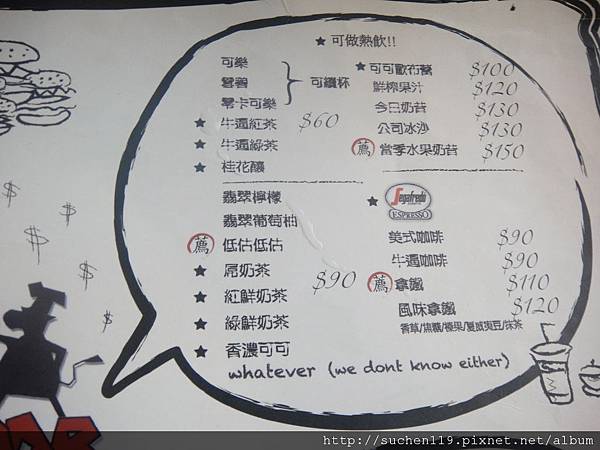 ★ 可做熱飲!!
可樂
雪碧
零卡可樂
可續杯
★ 牛逼紅茶 $60
★ 牛逼綠茶
★ 桂花釀
翡翠檸檬
翡翠葡萄柚
薦 低估低估
★ 屌奶茶 $90
★ 紅鮮奶茶
★ 綠鮮奶茶
★ 香濃可可
whatever (we dont know either)
★ 可可歐布蕾 $100
鮮榨果汁 $120
今日奶昔 $130
公司冰沙 $130
薦 當季水果奶昔 $150
★ Segafredo
ESPRESSO
美式咖啡 $90
牛逼咖啡 $90
薦 拿鐵 $110
風味拿鐵 $120
香草/焦糖/榛果/夏威夷豆/抹茶
http://suchen119.pixnet.net/album